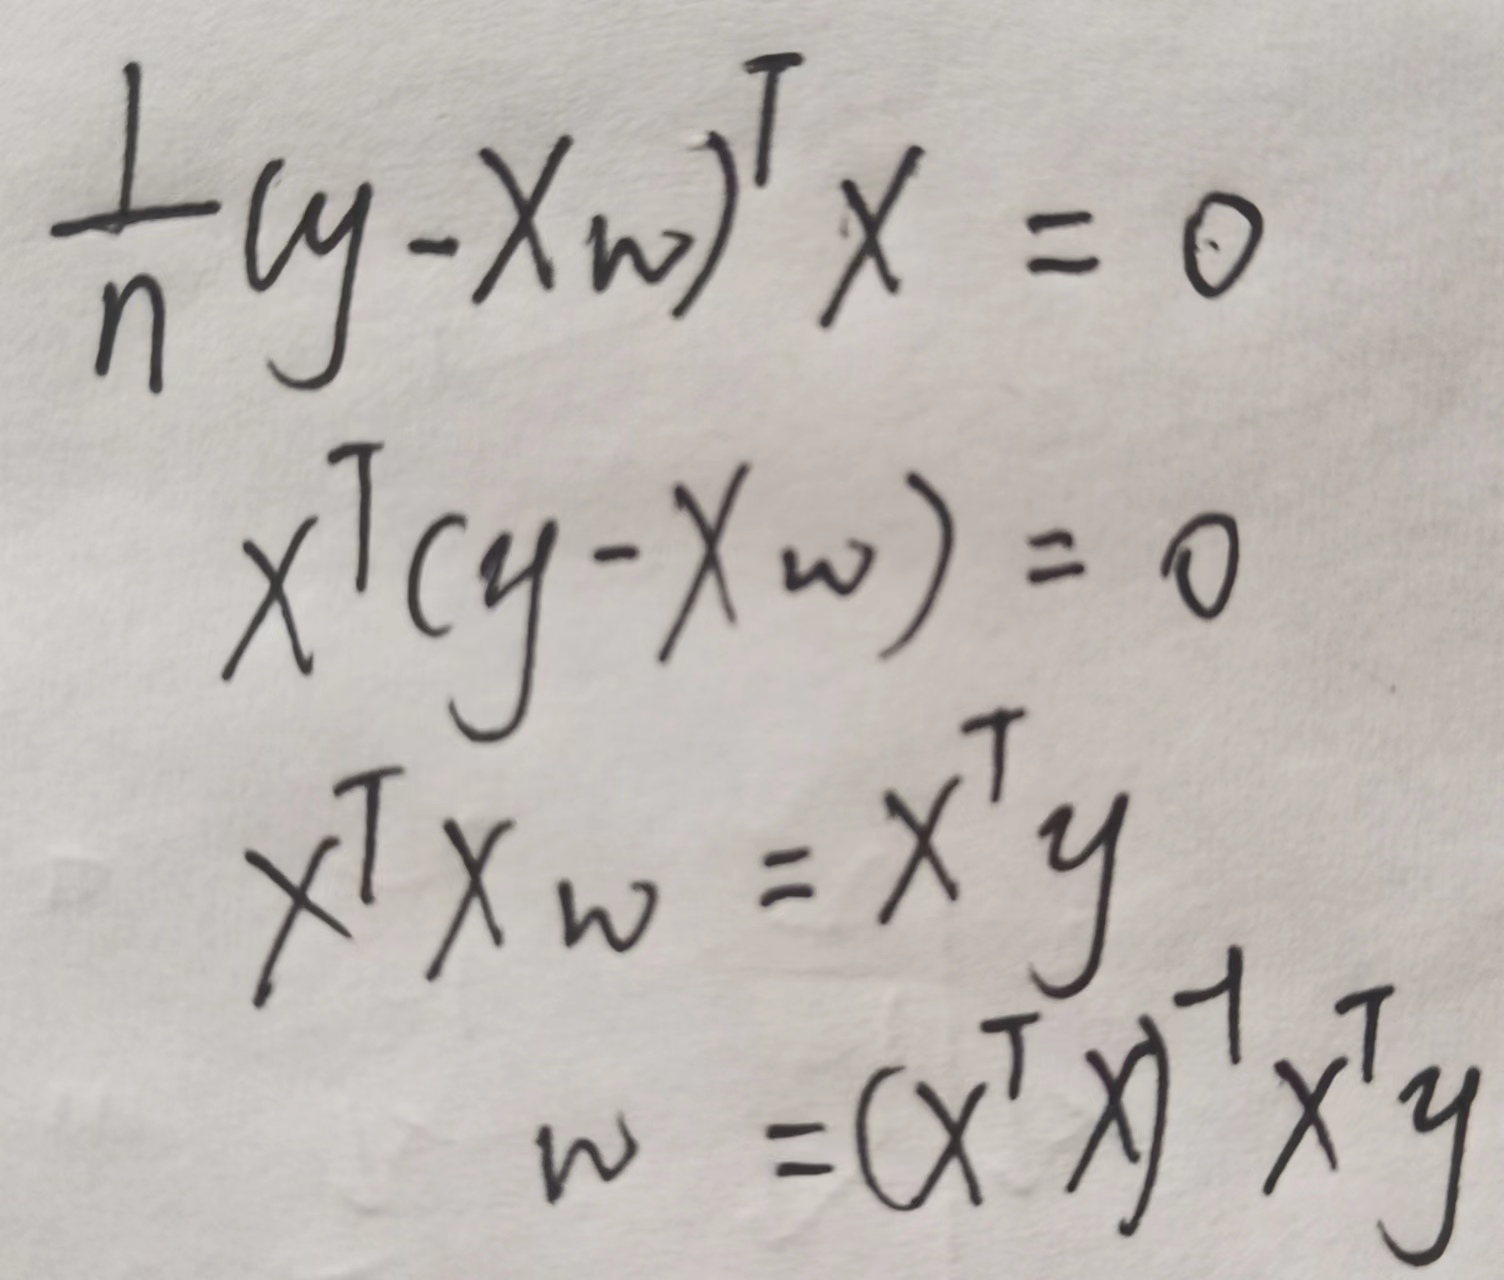 1/n (y - Xw)ᵀ X = 0
Xᵀ(y - Xw) = 0
XᵀXw = Xᵀy
w = (XᵀX)⁻¹Xᵀy